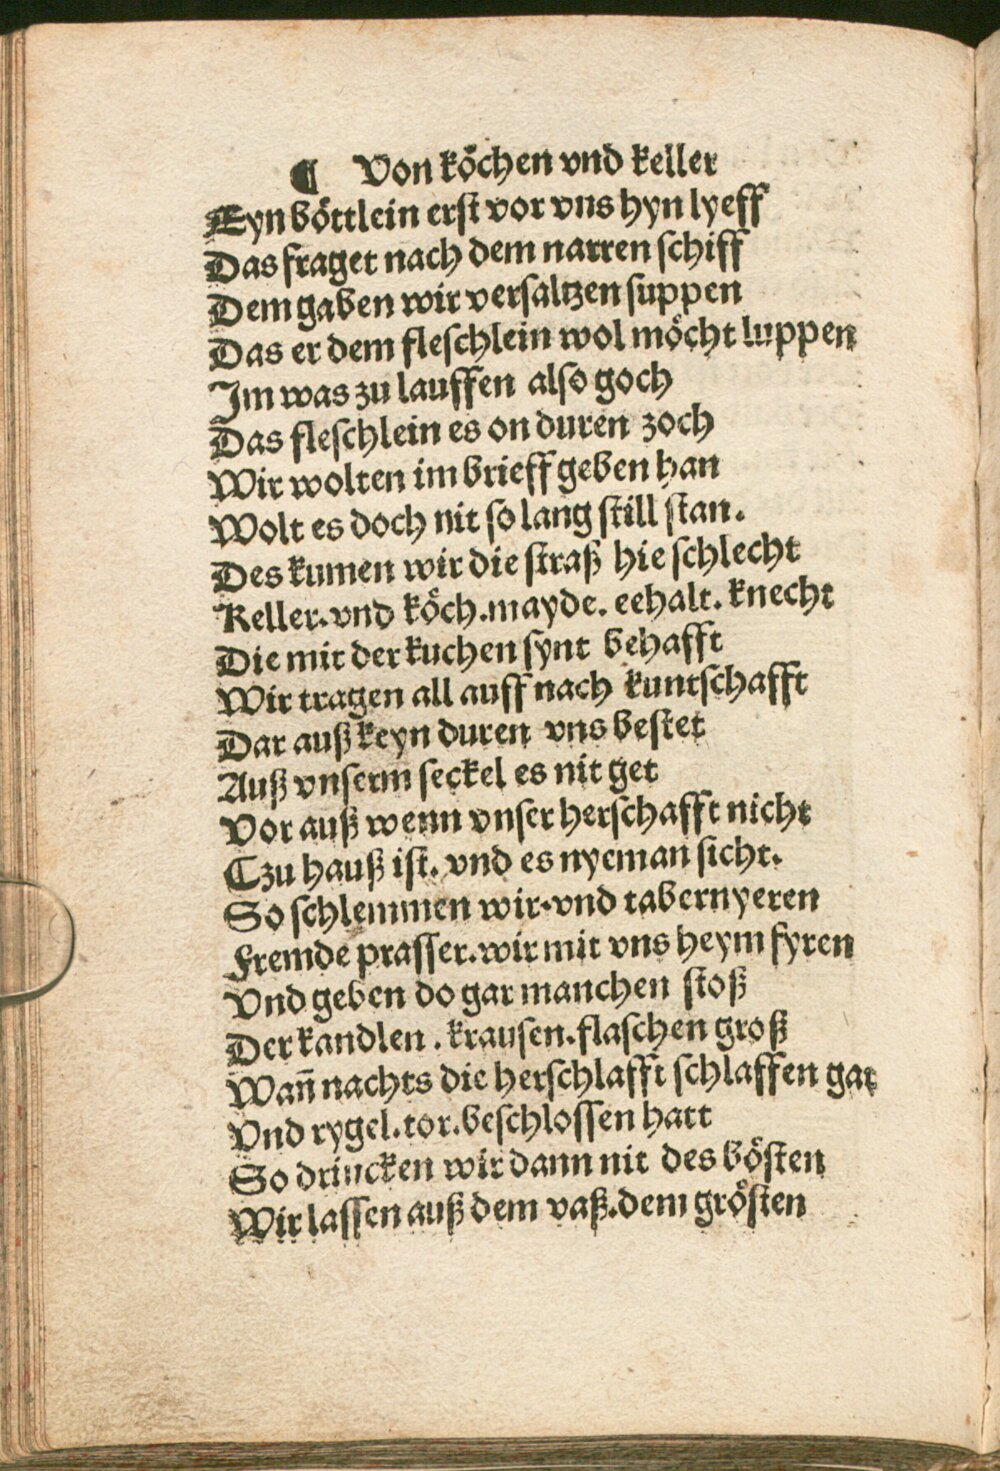 ¶ Von köchen vnd keller
Eyn böttlein erst vor vns hyn lyeff
Das fraget nach dem narren schiff
Dem gaben wir versaltzen suppen
Das er dem fleschlein wol möcht luppen
Im was zu lauffen also goch
Das fleschlein es on duren zoch
Wir wolten im brieff geben han
Wolt es doch nit so lang still stan.
Des kumen wir die straß hie schlecht
Keller. vnd köch. mayde. eehalt. knecht
Die mit der kuchen synt behafft
Wir tragen all auff nach kuntschafft
Dar auß keyn duren vns bestet
Auß vnserm seckel es nit get
Vor auß wenn vnser herschafft nicht
Czu hauß ist. vnd es nyeman sicht.
So schlemmen wir. vnd tabernyeren
Fremde prasser. wir mit vns heym fyren
Vnd geben do gar manchen stoß
Der kandlen . krausen. flaschen groß
Wan̄ nachts die herschlafft schlaffen gat
Vnd rygel. tor. beschlossen hatt
So drincken wir dann nit des bösten
Wir lassen auß dem vaß. dem grösten